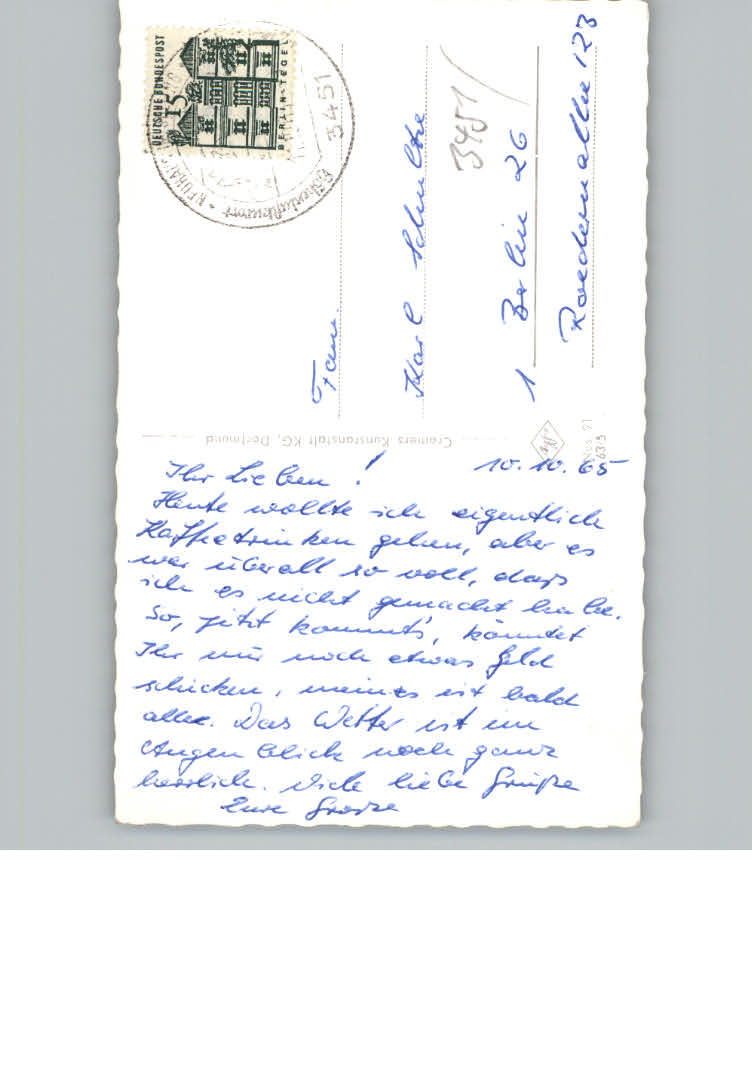 DEUTSCHE BUNDESPOST
15
BERLIN-TEGEL
3451
Höhenluftkurort
3451
Fam.
Karl Schultze
1 Berlin 26
Roedernallee 123
Cramers Kunstanstalt KG, Dortmund
Ihr Lieben! 10.10.65
Heute wollte ich eigentlich
Kaffeetrinken gehen, aber es
war überall so voll, dass
ich es nicht gemacht habe.
So, jetzt kommt's, könntet
Ihr mir noch etwas Geld
schicken, meines ist bald
alle. Das Wetter ist im
Augenblick noch ganz
herrlich. Viele liebe Grüße
Eure